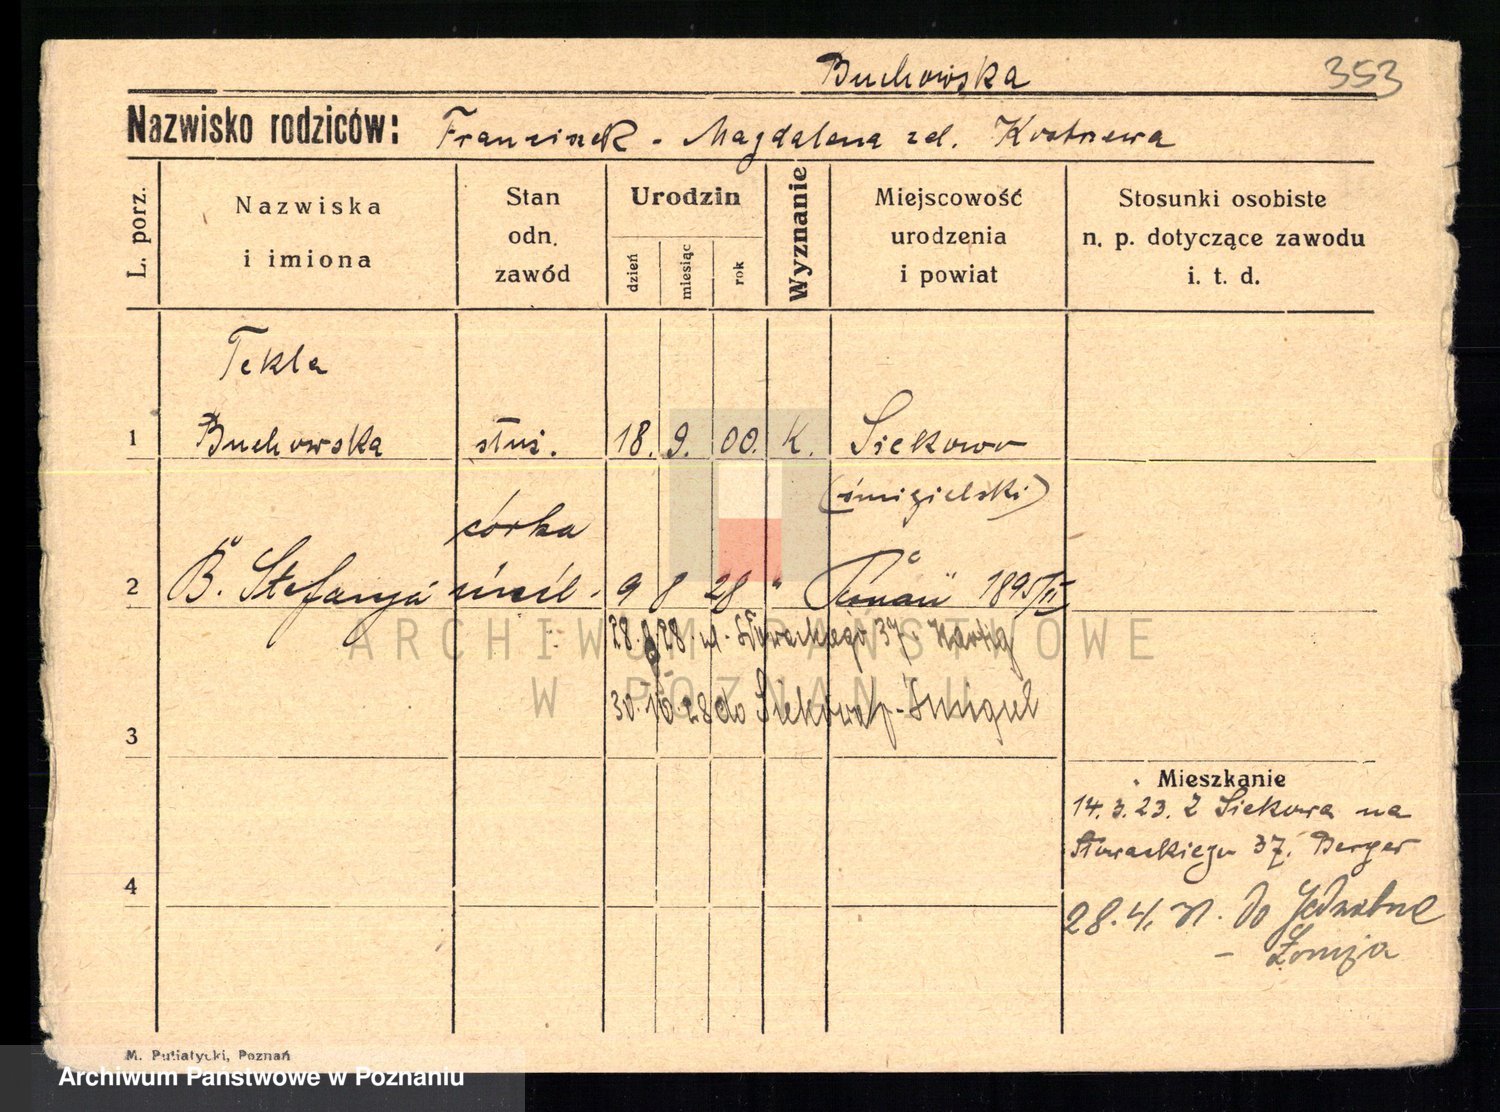 Buchowska 353
Nazwisko rodziców: Franciszek - Magdalena zd. Kostrzewa
L. porz.
Nazwiska i imiona
Stan odn. zawód
Urodzin
dzień miesiąc rok
Wyznanie
Miejscowość urodzenia i powiat
Stosunki osobiste n. p. dotyczące zawodu i. t. d.
Tekla
1 Buchowska służ. 18. 9. 00. K. Siekowo
(śmigielski)
córka
2 B. Stefanja 9 8 28 " Poznań 1895/II
28. 28. Słowackiego 37. Hartig
30. 10. 28 do Siekowa - Śmigiel
3
Mieszkanie
14. 3. 23. Z Siekowa na
Słowackiego 37. Berger
4
28. 4. 31. do Jedwabne
- Łomża
ARCHIWUM PAŃSTWOWE
W POZNANIU
M. Putiatycki, Poznań
Archiwum Państwowe w Poznaniu